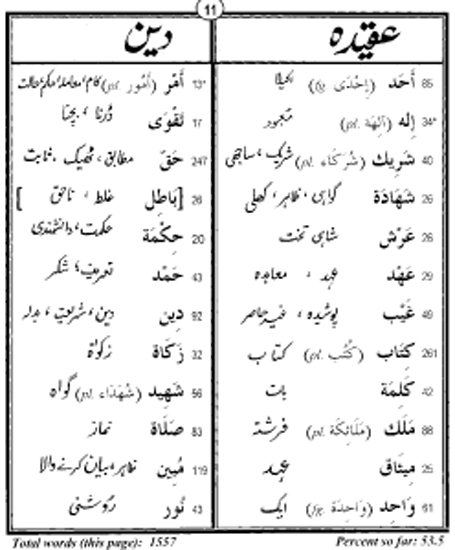 11
عقیدہ
85 أَحَد (إِحْدَى fg) اکیلا
34* إِله (آلِهَة pl.) معبود
40 شَرِيك (شُرَكَاء pl.) شریک، ساجھی
26 شَهَادَة گواہی، ظاہر، کھلی
26 عَرْش شاہی تخت
29 عَهْد عہد، معاہدہ
49 غَيْب پوشیدہ، غیر حاضر
261 كِتَاب (كُتُب pl.) کتاب
42 كَلِمَة بات
88 مَلَك (مَلَائِكَة pl.) فرشتہ
25 مِيثَاق عہد
61 وَاحِد (وَاحِدَة fg.) ایک
دین
13* أَمْر (أُمُور pl.) کام، معاملہ، حکم، حالت
17 تَقْوَى ڈرنا، بچنا
247 حَقّ مطابق، ٹھیک، ثابت
26 [بَاطِل غلط، ناحق]
20 حِكْمَة حکمت، دانشمندی
43 حَمْد تعریف، شکر
92 دِين دین، شریعت، بدلہ
32 زَكَاة زکوٰۃ
56 شَهِيد (شُهَدَاء pl.) گواہ
83 صَلَاة نماز
119 مُبِين ظاہر، بیان کرنے والا
43 نُور روشنی
Total words (this page): 1557
Percent so far: 53.5